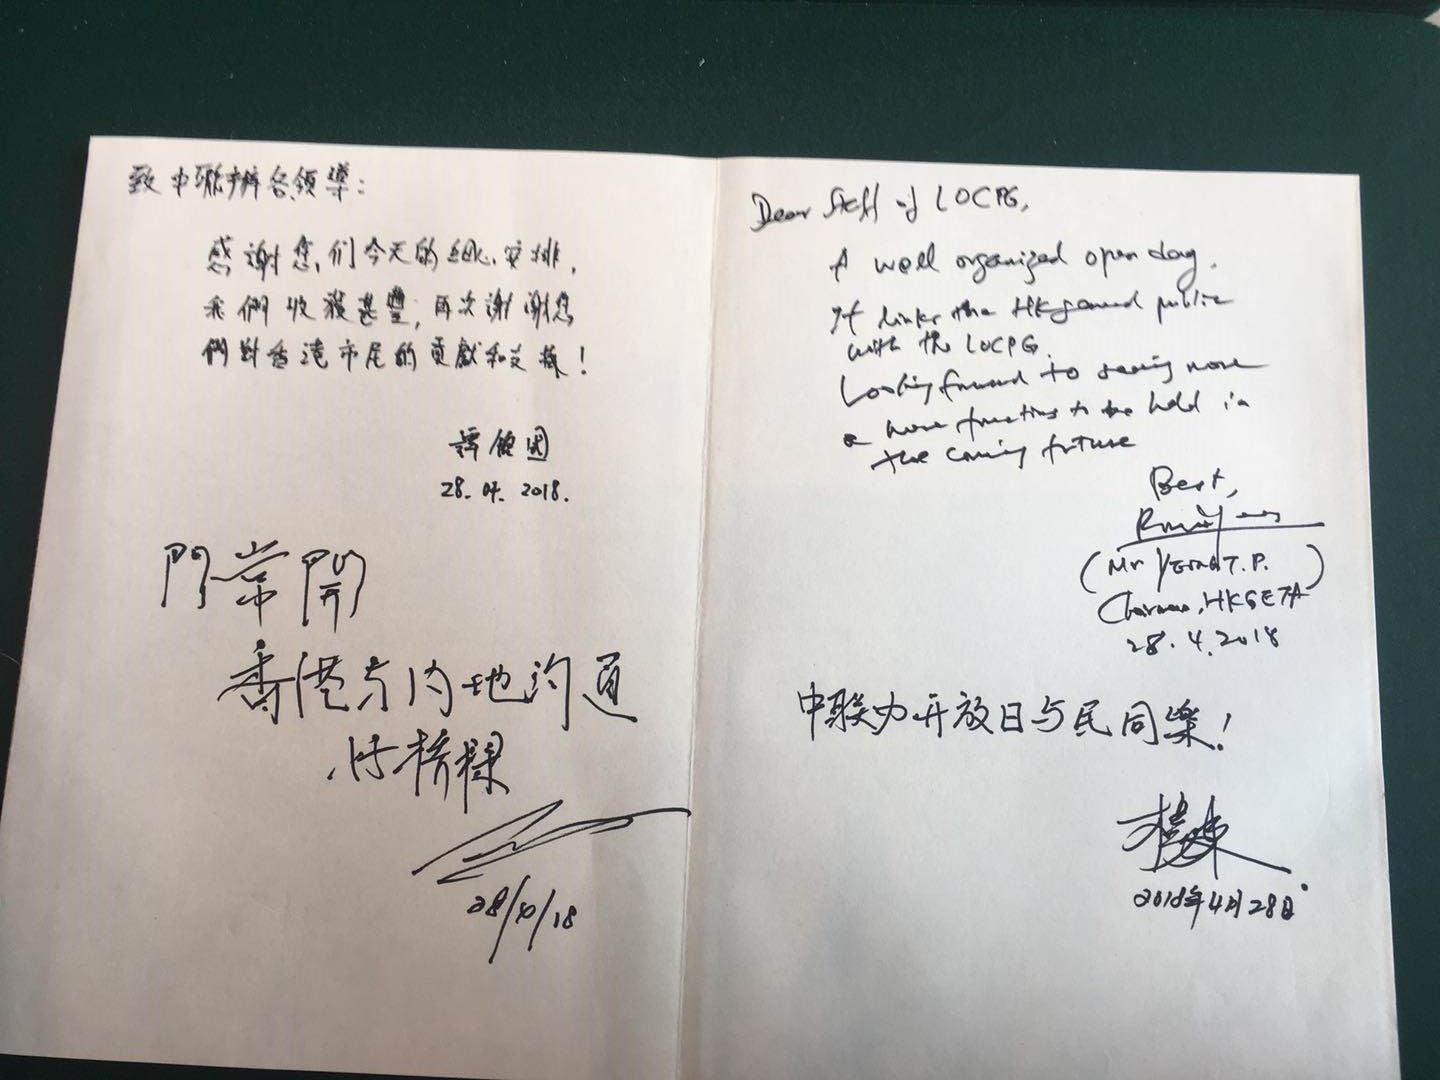 致中聯辦各領導：
感謝您们今天的細心安排，
我們收獲甚豐，再次謝謝您
們對香港市民的貢獻和支持！
譚
28.04.2018.
門常開
香港与内地沟通
付橋樑
28/4/18
Dear Staff of LOCPG,
A well organized open day.
It links the HK general public
with the LOCPG.
Looking forward to seeing more
& more functions to be held in
the coming future
Best,
(Mr T.P.)
Chairman, HKSETA
28.4.2018
中联办开放日与民同樂！
2018年4月28日